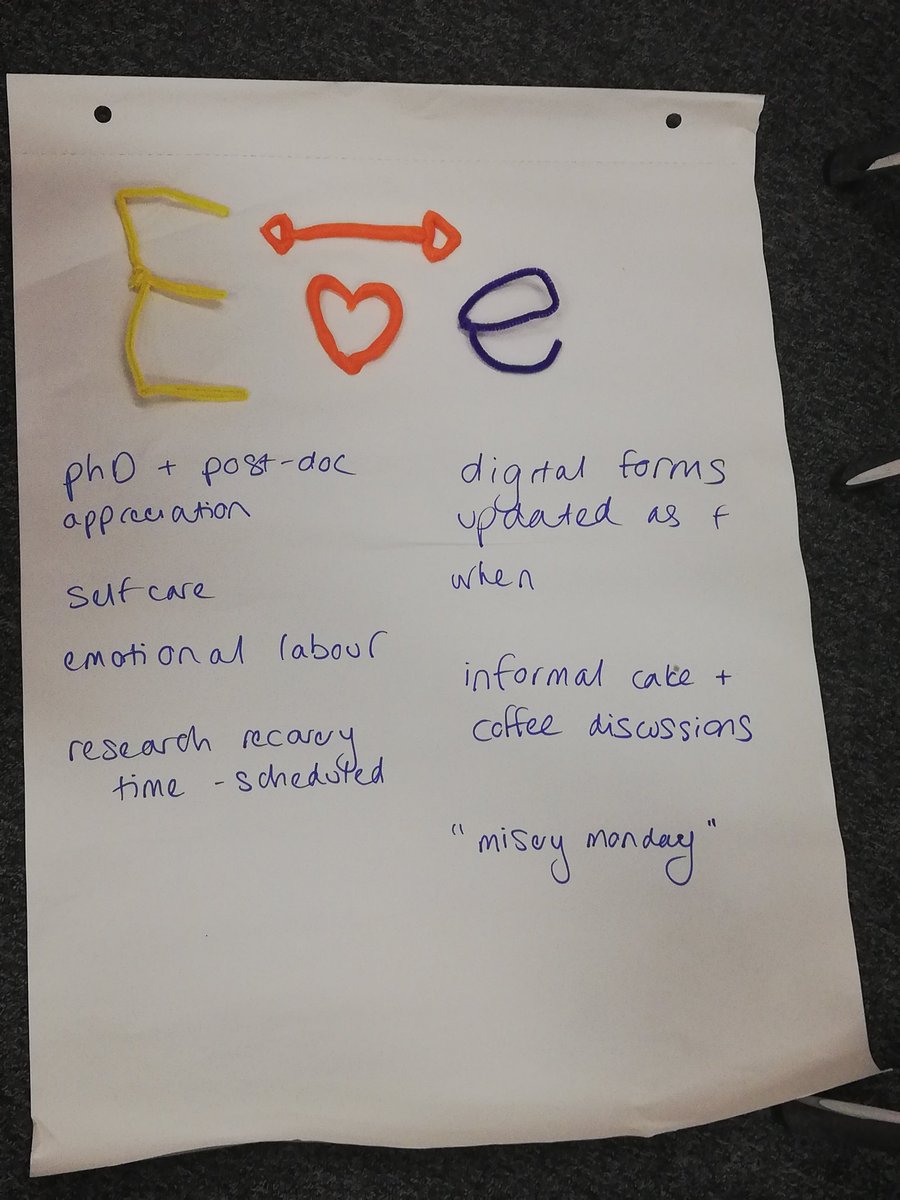 E e
phD + post-doc
appreciation
self care
emotional labour
research recovery
time - scheduled
digital forms
updated as +
when
informal cake +
coffee discussions
"misery monday"